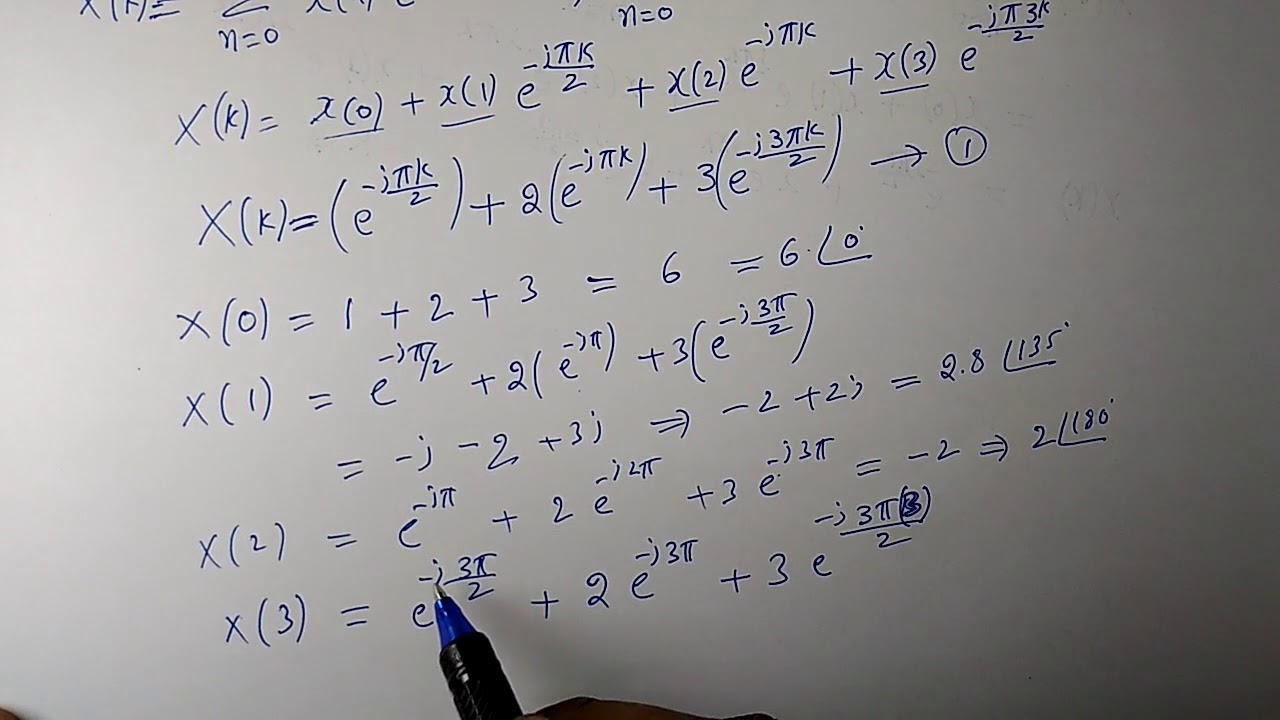 n=0 n=0
X(k)= x(0) + x(1) e^{-jπk/2} + x(2) e^{-jπk} + x(3) e^{-jπ3k/2}
X(k)= (e^{-jπk/2}) + 2(e^{-jπk}) + 3(e^{-j3πk/2}) → ①
X(0) = 1 + 2 + 3 = 6 = 6∠0°
X(1) = e^{-jπ/2} + 2(e^{-jπ}) + 3(e^{-j3π/2})
= -j -2 +3j ⇒ -2 +2j = 2.8∠135°
X(2) = e^{-jπ} + 2e^{-j2π} + 3e^{-j3π} = -2 ⇒ 2∠180°
X(3) = e^{-j3π/2} + 2e^{-j3π} + 3e^{-j3π(3)/2}